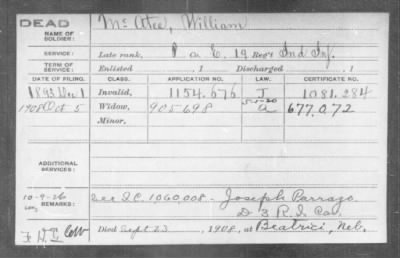 DEAD
NAME OF SOLDIER: McAtee, William
SERVICE: Late rank, P Co. E, 19 Reg't Ind Inf.
TERM OF SERVICE: Enlisted , 1 Discharged , 1
DATE OF FILING. CLASS. APPLICATION NO. LAW. CERTIFICATE NO.
1893 Dec 1 Invalid, 1154.676 J 1081.284
5-1-20
1908 Oct 5 Widow, 905698 a 677,072
Minor.
ADDITIONAL SERVICES:
10-9-26
REMARKS: See I.C. 1060,008 - Joseph
D 3 R.I. Cav.
Died Sept 23, 1908, at Beatrice, Neb.